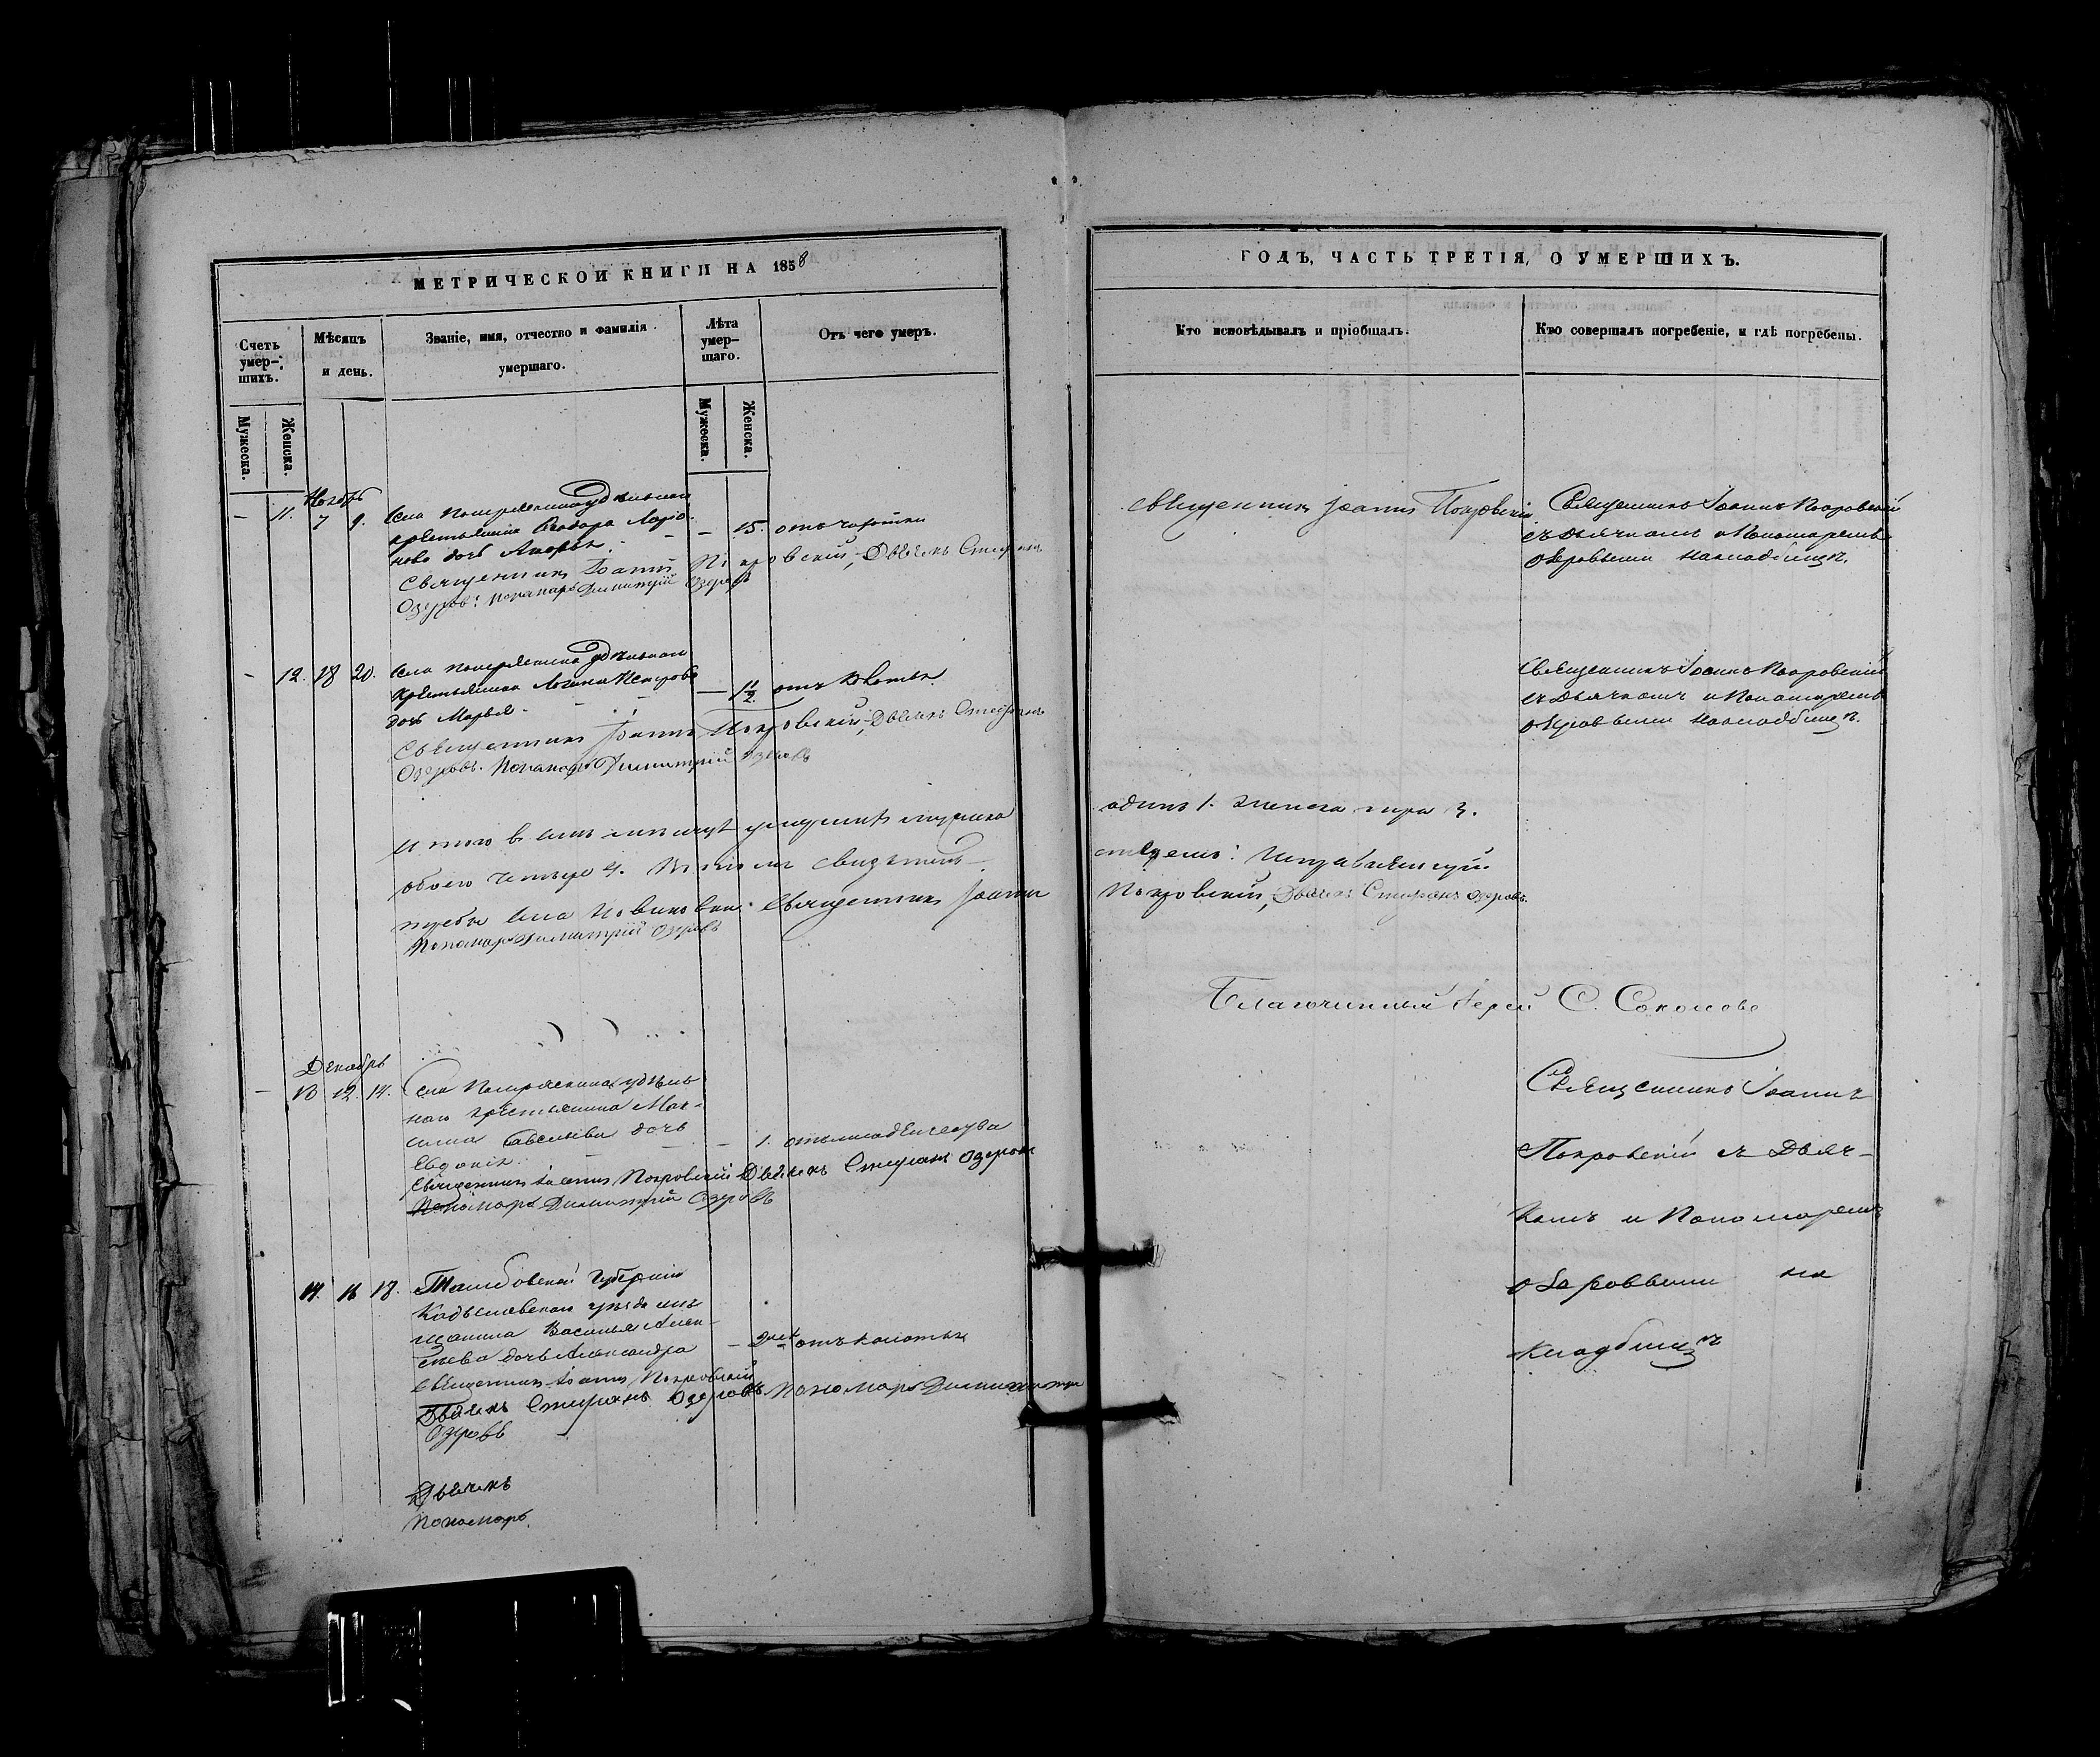 МЕТРИЧЕСКОЙ КНИГИ НА 1858
Счетъ умер-шихъ.
Мѣсяцъ и день.
Званіе, имя, отчество и фамилія умершаго.
Лѣта умер-шаго.
Отъ чего умеръ.
Мужеска.
Женска.
Мужеска.
Женска.
Ноябрь
– 11. 7 9. Села удѣльнаго
крестьянина Ѳеодора Ларіо- – 15. отъ чахотки
нова дочь
Священникъ Іоаннъ Покровскій, Дьячекъ Стефанъ
Озеровъ. Пономарь Димитрій Озеровъ
– 12. 18 20. Села удѣльнаго
крестьянина – 1½ отъ
дочь Марья
Священникъ Іоаннъ Покровскій, Дьячекъ Стефанъ
Озеровъ. Пономарь Димитрій Озеровъ
Итого в семъ мѣсяцѣ умершихъ мужеска
обоего четыре 4. свидѣтель-
Священникъ Іоаннъ
Пономарь Димитрій Озеровъ
Декабрь
– 13 12. 14. Села удѣль-
наго крестьянина Мак-
сима Савельева дочь – 1. отъ младенчества
Евдокія
Священникъ Іоаннъ Покровскій Дьячекъ Стефанъ Озеровъ
Пономарь Димитрій Озеровъ
14. 16 18. Тамбовской Губерніи
уѣзда мѣ-
щанина Василья Алек-
сѣева дочь Александра –
Священникъ Іоаннъ Покровскій
Дьячекъ Стефанъ Озеровъ Пономарь Димитрій
Озеровъ
Дьячекъ
Пономарь
ГОДЪ, ЧАСТЬ ТРЕТІЯ, О УМЕРШИХЪ.
Кто исповѣдывалъ и пріобщалъ.
Кто совершалъ погребеніе, и гдѣ погребены.
Священникъ Іоаннъ Покровскій
Священникъ Іоаннъ Покровскій
съ Дьячкомъ и Пономаремъ
Озеровыми на кладбищѣ.
Священникъ Іоаннъ Покровскій
съ Дьячкомъ и Пономаремъ
Озеровыми на кладбищѣ.
одинъ 1. женска три 3.
ствуемъ:
Покровскій, Дьячекъ Стефанъ Озеровъ.
Благочинный Іерей С. Соколовъ
Священникъ Іоаннъ
Покровскій съ Дьяч-
комъ и Пономаремъ
Озеровыми на
кладбищѣ